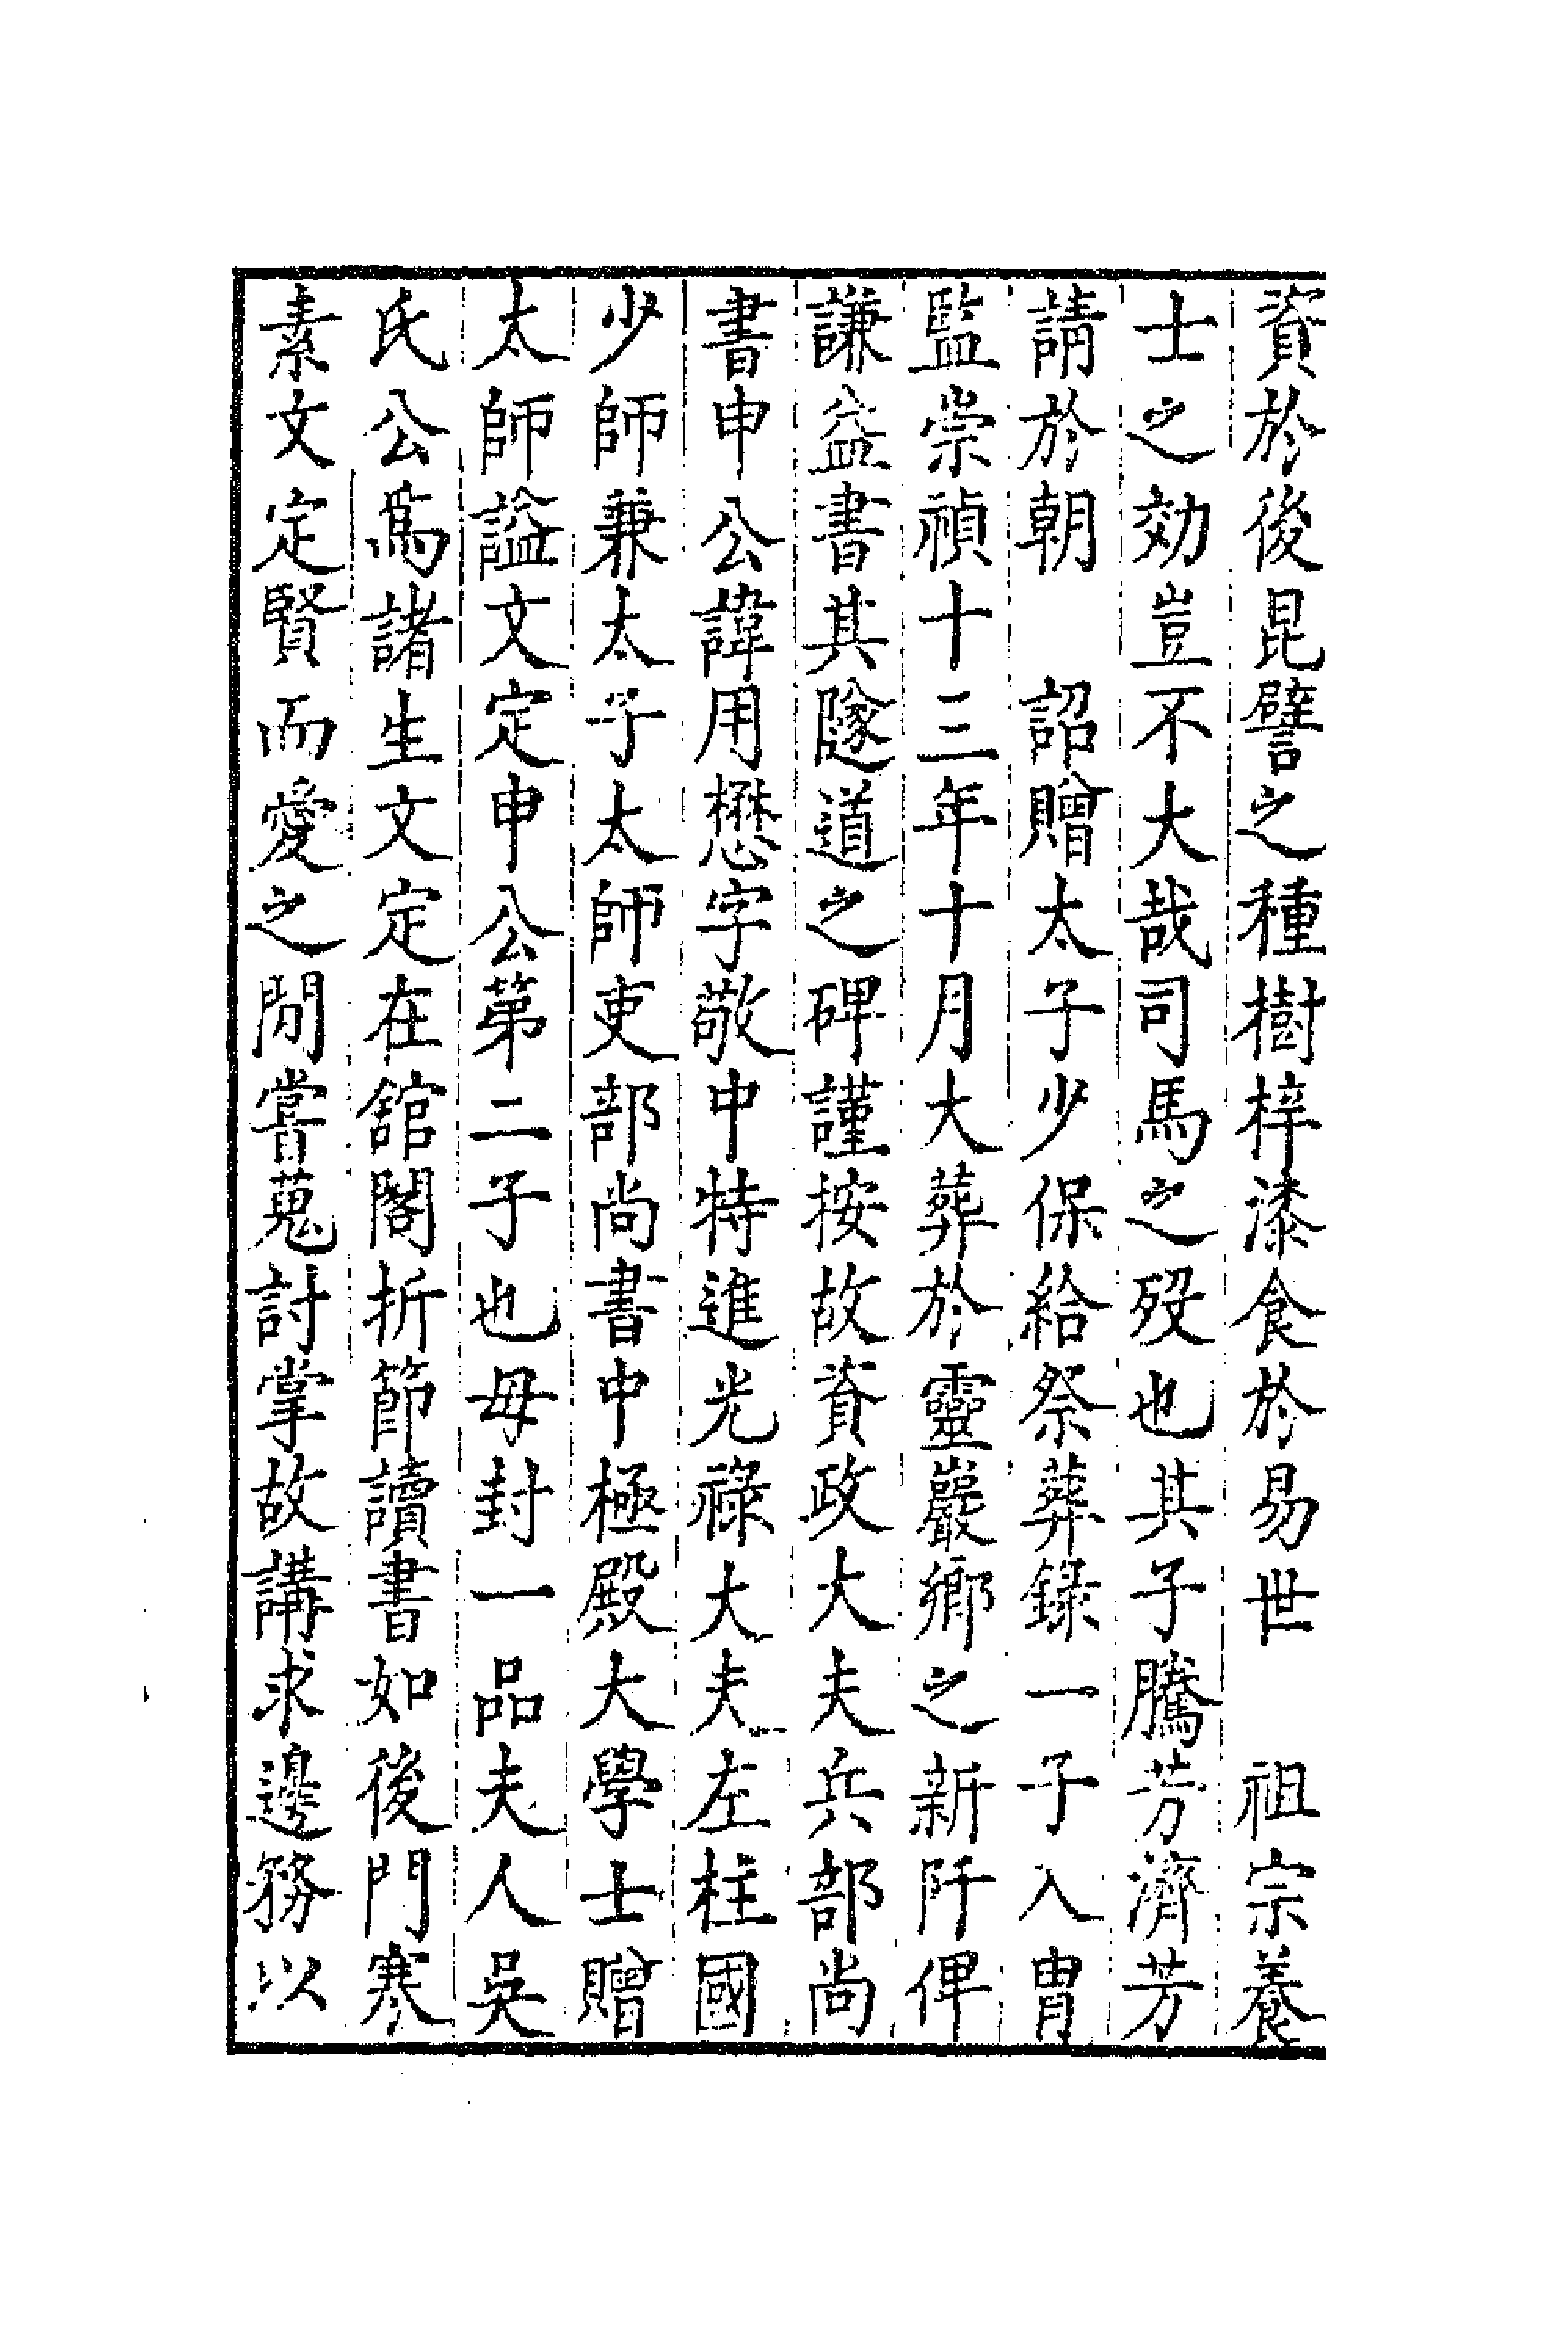 資於後昆譬之種樹梓漆食於易世　祖宗養
士之効豈不大哉司馬之歿也其子騰芳濟芳
請於朝　詔贈太子少保給祭葬錄一子入胄
監崇禎十三年十月大葬於靈巖鄉之新阡俾
謙益書其隧道之碑謹按故資政大夫兵部尚
書申公諱用懋字敬中特進光祿大夫左柱國
少師兼太子太師吏部尚書中極殿大學士贈
太師謚文定申公第二子也母封一品夫人吳
氏公爲諸生文定在館閣折節讀書如後門寒
素文定賢而愛之閒嘗蒐討掌故講求邊務以